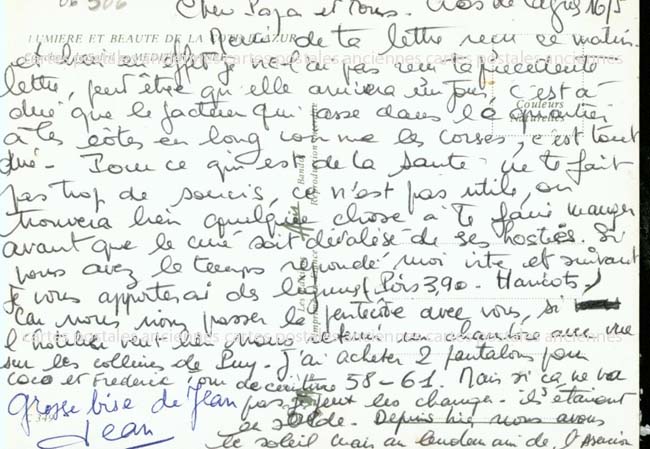 06 306
Cher Papa et Tous. Cros de Cagnes 16/5
LUMIERE ET BEAUTE DE LA COTE D'AZUR
Merci de ta lettre reçu ce matin.
effet je n'ai pas reçu ta précédente
lettre, peut être qu'elle arrivera un jour, c'est a
dire que le facteur qui passe dans le quartier
à les côtes en long comme les corses, c'est tout
dire. Pour ce qui est de la santé ne te fait
pas trop de soucis, ça n'est pas utile, on
trouvera bien quelque chose à te faire manger
avant que le curé soit dévalisé de ses hosties. Si
vous avez le temps répondé moi vite, et suivant
je vous apporterai des légumes (Pois 3,90 - Haricots)
Car nous irons passer la pentecôte avec vous, si
l'hôtelier veut bien nous retenir une chambre avec vue
sur les collines de Puy. J'ai acheter 2 pantalons pour
Coco et Frédéric pour de ceinture 58-61. Mais si ça ne va
pas je peux les changer. ils étaient
en solde. Depuis hier nous avons
le soleil mais au lendemain de l'Ascension
Grosse bise de Jean
Jean
Couleurs
Naturelles
cartes postales anciennes